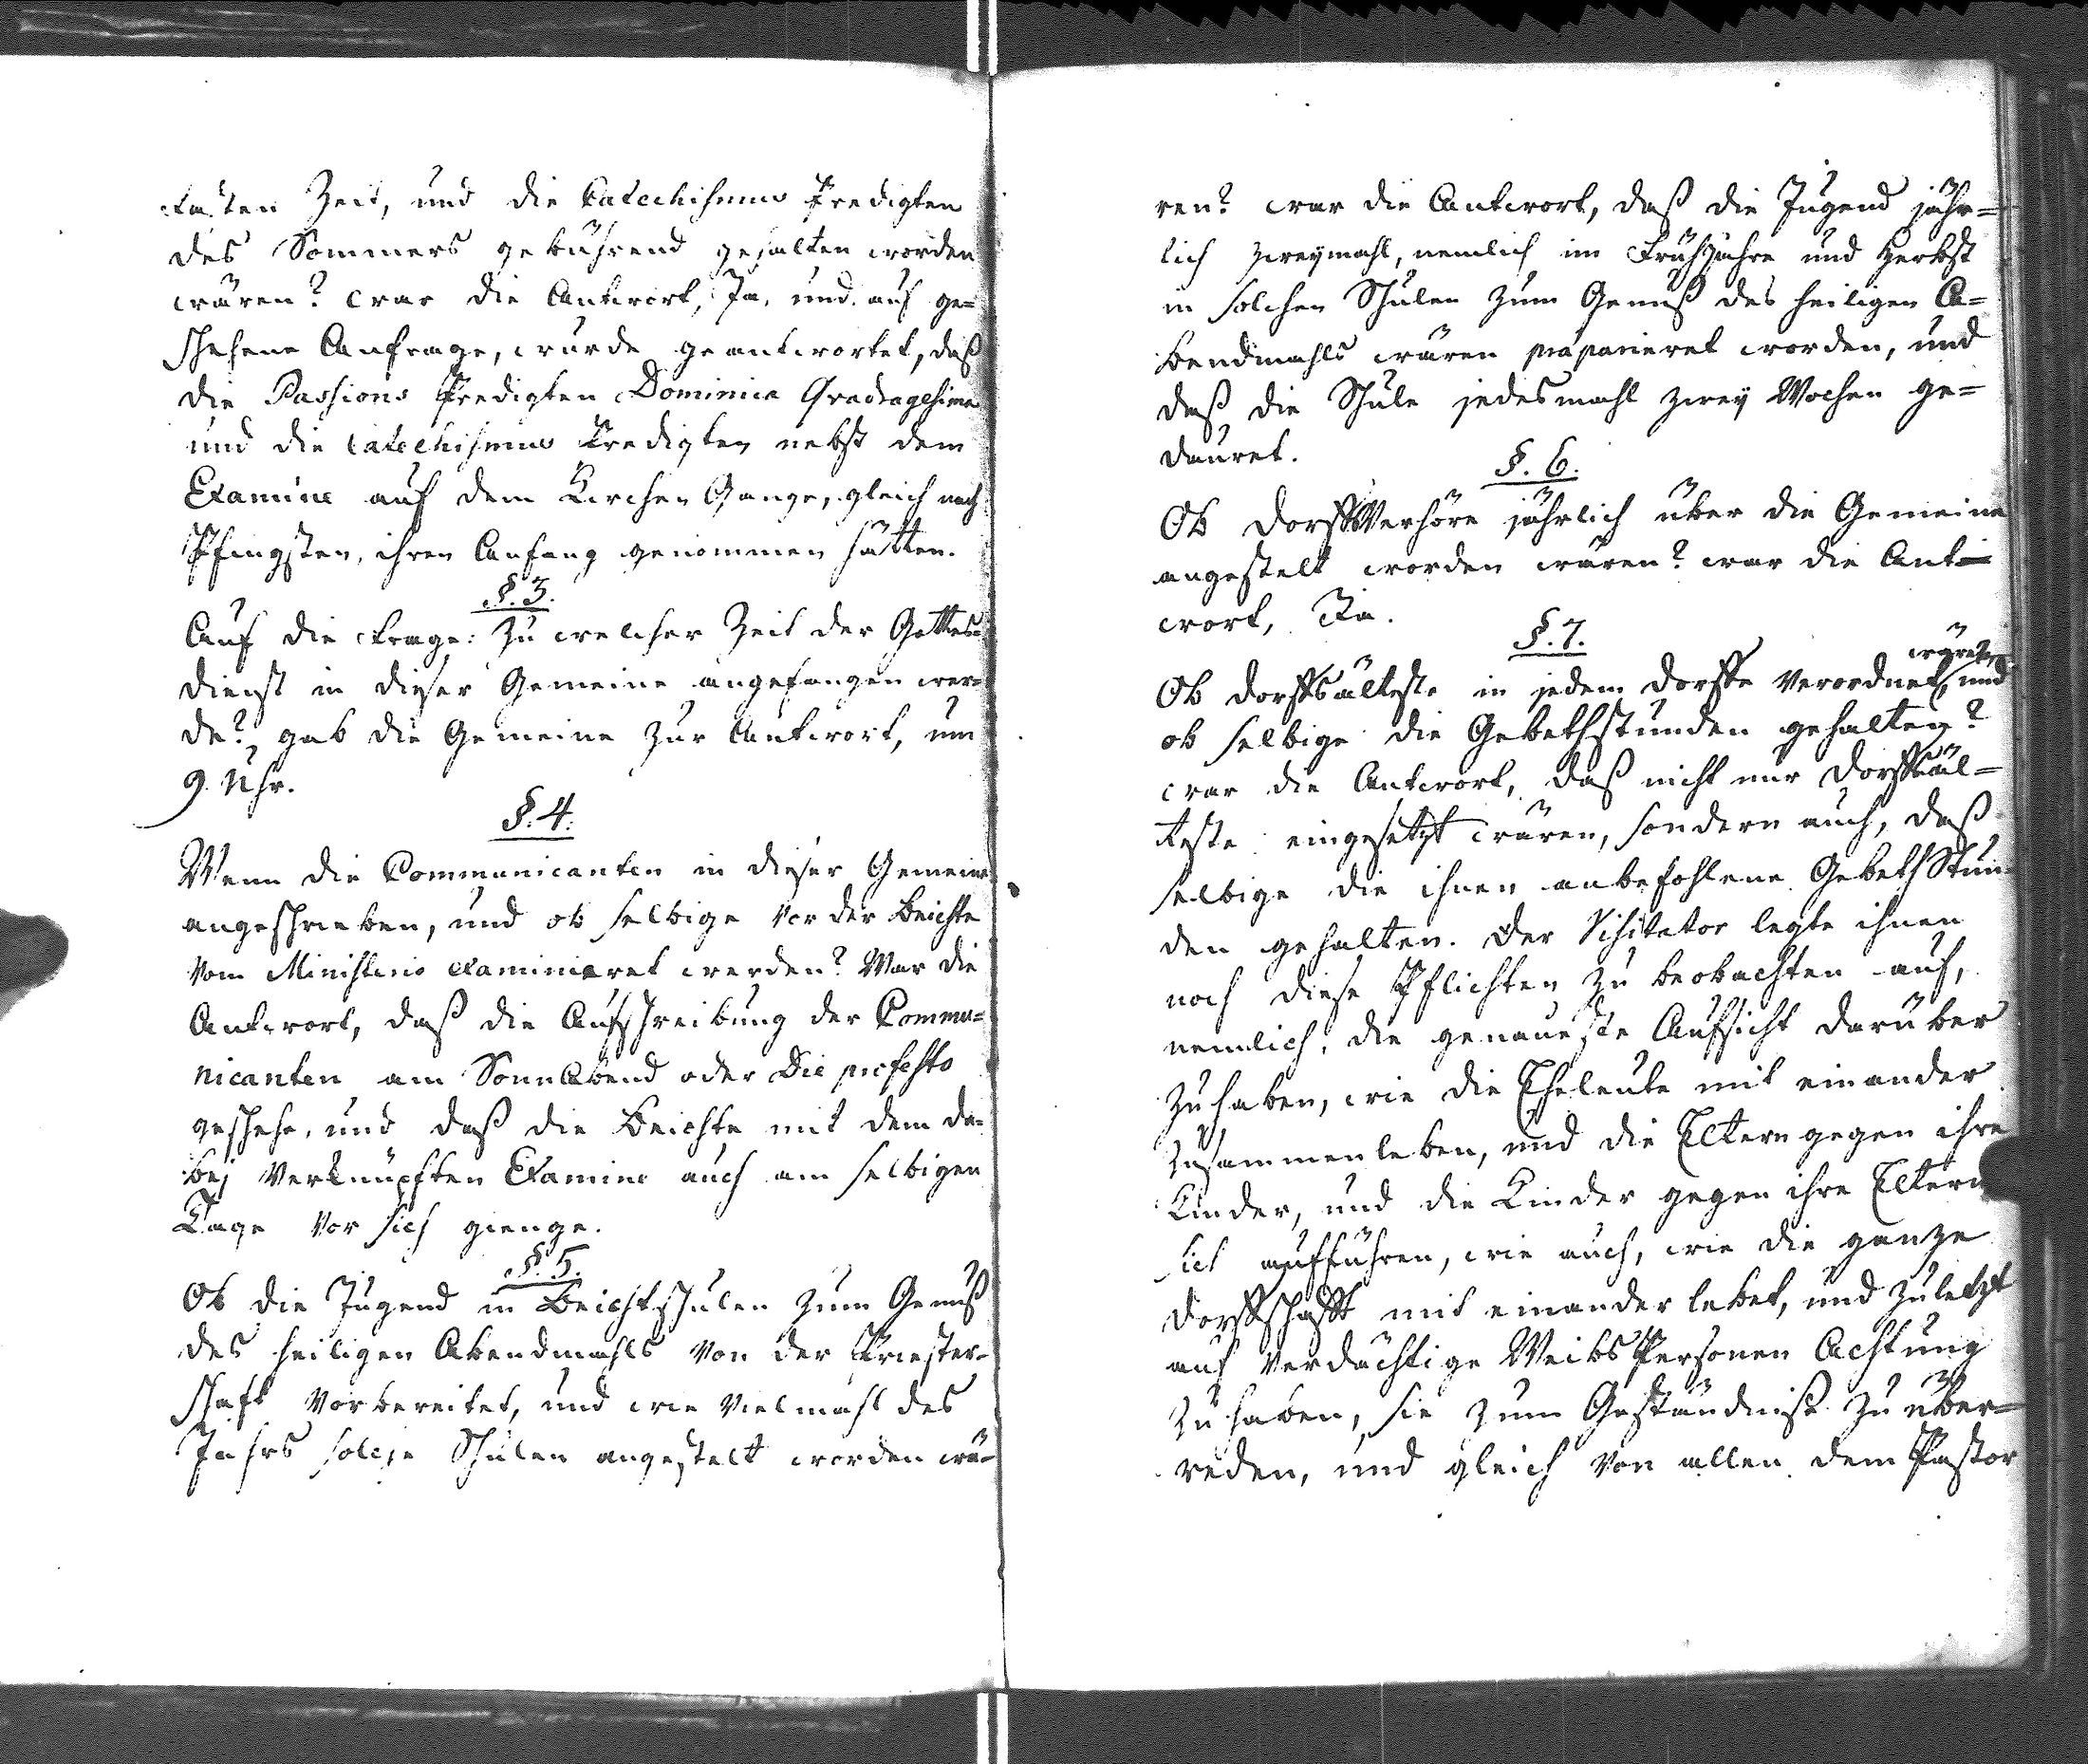 Fasten Zeit, und die Catechismus Predigten
des Sommers gebührend gehalten worden
wären? war die Antwort, Ja, und auf ge=
schehene Anfrage, wurde geantwortet, daß
die Passions Predigten Dominica Qvadragesima
und die Catechismus Predigten nebst dem
Examine auf dem Kirchen Gange, gleich nach
Pfingsten, ihren Anfang genommen hätten.
§. 3.
Auf die Frage: Zu welcher Zeit der Gottes=
dienst in dieser Gemeine angefangen wer=
de? gab die Gemeine zur Antwort, um
9. Uhr.
§. 4.
Wenn die Communicanten in dieser Gemeine
angeschrieben, und ob selbige vor der Beichte
vom Ministerio examiniret werden? War die
Antwort, daß die Aufschreibung der Commu=
nicanten am Sonnabend oder Die profesto
geschehe, und daß die Beichte mit dem da=
bej verknüpften Examine auch am selbigen
Tage vor sich gienge.
§. 5.
Ob die Jugend in Beichtschulen zum Genuß
des heiligen Abendmahls von der Priester=
schaft vorbereitet, und wie vielmahl des
Jahrs solche Schulen angestelt worden wä=
ren? war die Antwort, daß die Jugend jähr=
lich zweymahl, nemlich im Frühjahre und Herbst
in solchen Schulen zum Genuß des heiligen A=
bendmahls wären präpariret worden, und
daß die Schule jedesmahl zwey Wochen ge=
dauret.
§. 6.
Ob Dorffs Verhöre jährlich über die Gemeine
angestelt worden wären? war die Ant=
wort, Ja.
§. 7.
wären
Ob Dorffsälteste in jedem Dorffe verordnet, und
ob selbige die Gebethstunden gehalten?
war die Antwort, daß nicht nur Dorffsäl=
teste eingesetzt wären, sondern auch, daß
selbige die ihnen anbefohlene Gebeth Stun=
den gehalten. Der Visitator legte ihnen
noch diese Pflichten zu beobachten auf,
nemlich, die genaueste Aufsicht darüber
zu haben, wie die Eheleute mit einander
zusammen leben, und die Eltern gegen ihre
Kinder, und die Kinder gegen ihre Eltern
sich aufführen, wie auch, wie die ganze
Dorffschafft mit einander lebet, und zuletzt
auf verdächtige Weibs Personen Achtung
zu haben, sie zum Geständniße zu über=
reden, und gleich von allen dem Pastor